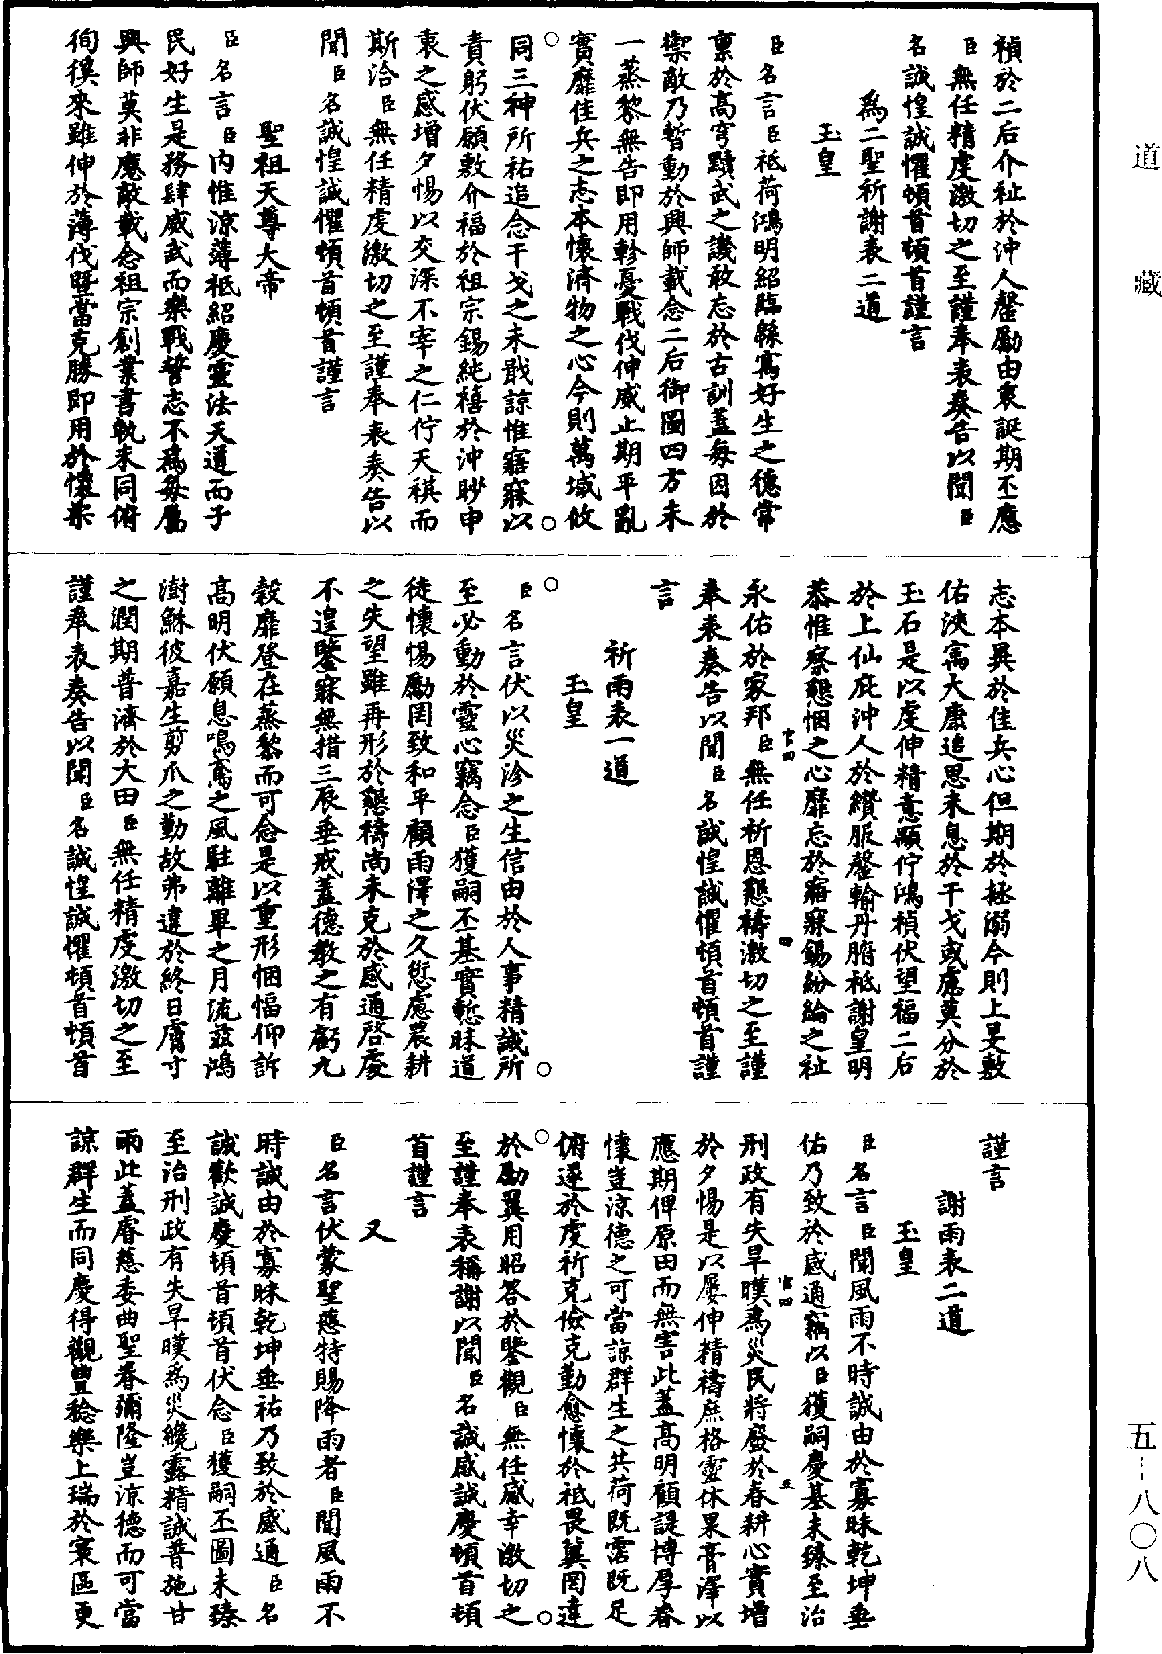 道藏
禎於二后介祉於沖人罄勵由衷誕期丕應
臣無任精虔激切之至謹奉表奏告以聞臣
名誠惶誠懼頓首頓首謹言
為二聖祈謝表二道
玉皇
臣名言臣祗荷鴻明紹臨縣寓好生之德常
稟於高穹黷武之譏敢忘於古訓蓋每因於
禦敵乃暫動於興師載念二后御圖四方未
一蒸黎無告即用軫憂戰伐伸威止期平亂
實靡佳兵之志本懷濟物之心今則萬域攸
同三神所祐追念干戈之未戢諒惟寤寐以
責躬伏願敷介福於祖宗錫純禧於沖眇申
衷之感增夕惕以交深不宰之仁佇天祺而
斯洽臣無任精虔激切之至謹奉表奏告以
聞臣名誠惶誠懼頓首頓首謹言
聖祖天尊大帝
臣名言臣內惟涼薄祗紹慶靈法天道而子
民好生是務肆威武而樂戰誓志不為每屬
興師莫非應敵載念祖宗創業書軌未同俯
徇徯來雖伸於薄伐暨當克勝即用於懷柔
志本異於佳兵心但期於拯溺今則上旻敷
佑浹寓大康追思未息於干戈或慮莫分於
玉石是以虔伸精意顯佇鴻禎伏望福二后
於上仙庇沖人於纘服罄輸丹腑祗謝皇明
恭惟察懇悃之心靡忘於寤寐錫紛綸之祉
永佑於家邦臣無任祈恩懇禱激切之至謹
奉表奏告以聞臣名誠惶誠懼頓首頓首謹
言
祈雨表一道
玉皇
臣名言伏以災沴之生信由於人事精誠所
至必動於靈心竊念臣獲嗣丕基實慙昧道
徒懷惕勵罔致和平顧雨澤之久愆慮農耕
之失望雖再形於懇禱尚未克於感通啓處
不遑鑒寐無措三辰垂戒蓋德教之有虧九
穀靡登在蒸黎而可念是以重形悃愊仰訴
高明伏願息鳴鳶之風駐離畢之月流茲鴻
澍穌彼嘉生剪爪之勤故弗違於終日膚寸
之潤期普濟於大田臣無任精虔激切之至
謹奉表奏告以聞臣名誠惶誠懼頓首頓首
謹言
謝雨表二道
玉皇
臣名言臣聞風雨不時誠由於寡昧乾坤垂
佑乃致於感通竊以臣獲嗣慶基未臻至治
刑政有失旱暵為災民將廢於春耕心實增
於夕惕是以屢伸精禱庶格靈休果膏澤以
應期俾原田而無害此蓋高明顧諟博厚眷
懷豈涼德之可當諒群生之共荷既霑既足
俯遂於虔祈克儉克勤愈懷於祗畏冀罔違
於勵翼用昭答於鑒觀臣無任感幸激切之
至謹奉表稱謝以聞臣名誠感誠慶頓首頓
首謹言
又
臣名言伏蒙聖慈特賜降雨者臣聞風雨不
時誠由於寡昧乾坤垂祐乃致於感通臣名
誠歡誠慶頓首頓首伏念臣獲嗣丕圖未臻
至治刑政有失旱暵為災纔露精誠普施甘
雨此蓋睿慈委曲聖眷彌隆豈涼德而可當
諒群生而同慶得觀豐稔樂上瑞於寰區更
五一八〇八